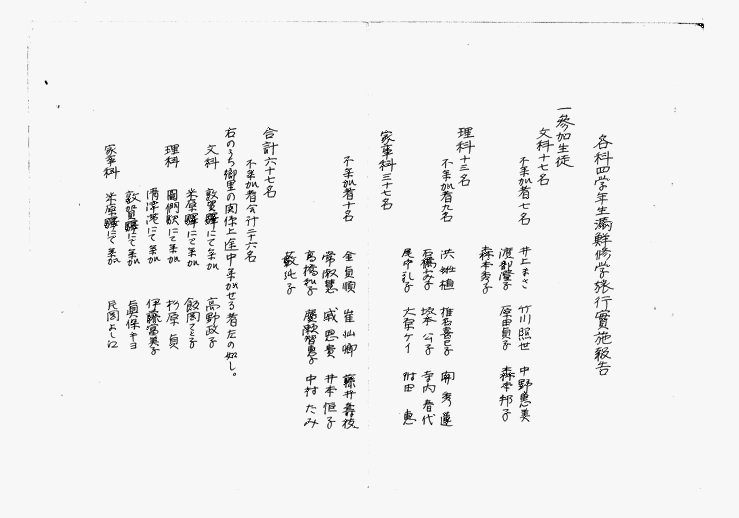 各科四学年生満鮮修学旅行實施報告
一參加生徒
文科十七名
不参加者七名
井上まさ 竹川照世 中野恵美
渡部瑩子 原田貞子 森本邦子
森本秀子
理科十三名
不参加者九名
洪姫植 椎名喜巳子 関秀蓮
石橋お子 坂本公子 寺内春代
尾中礼子 大泉ケイ 村田恵
家事科三十七名
不参加者十名
金貞順 崔仙卿 藤井壽枝
常淑慧 戚思貴 井本恒子
高橋和子 廣瀬智恵子 中村たみ
藪地子
合計六十七名
不参加者合計二十六名
右のうち郷里の関係上途中参加せる者左の如し。
文科 敦賀驛にて参加 高野政子
米原驛にて参加 飯岡てる子
理科 圖們駅にて参加 杉原貞
清津港にて参加 伊藤富美子
敦賀驛にて参加 真保キヨ
家事科 米原驛にて参加 民岡よし江